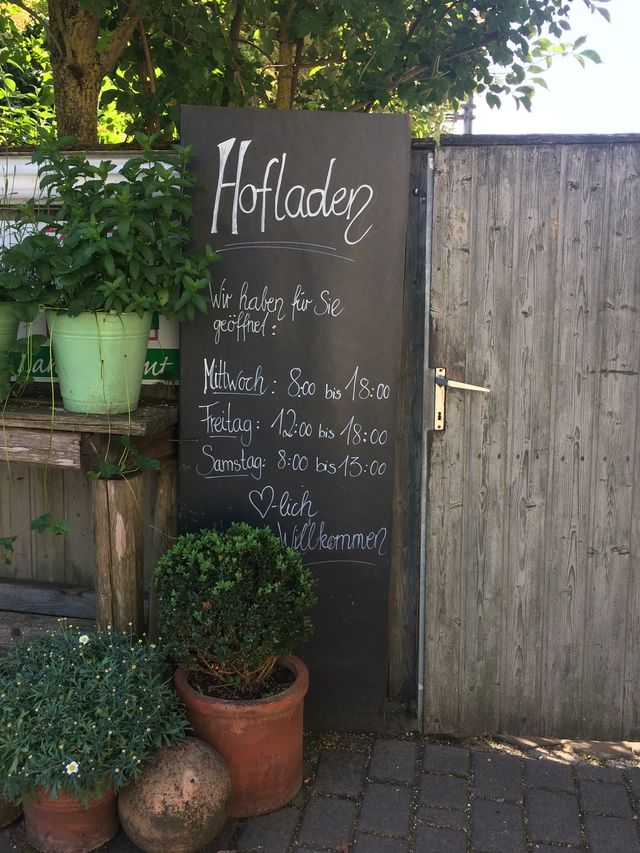 Hofladen
Wir haben für Sie
geöffnet:
Mittwoch: 8:00 bis 18:00
Freitag: 12:00 bis 18:00
Samstag: 8:00 bis 13:00
♡-lich
Willkommen